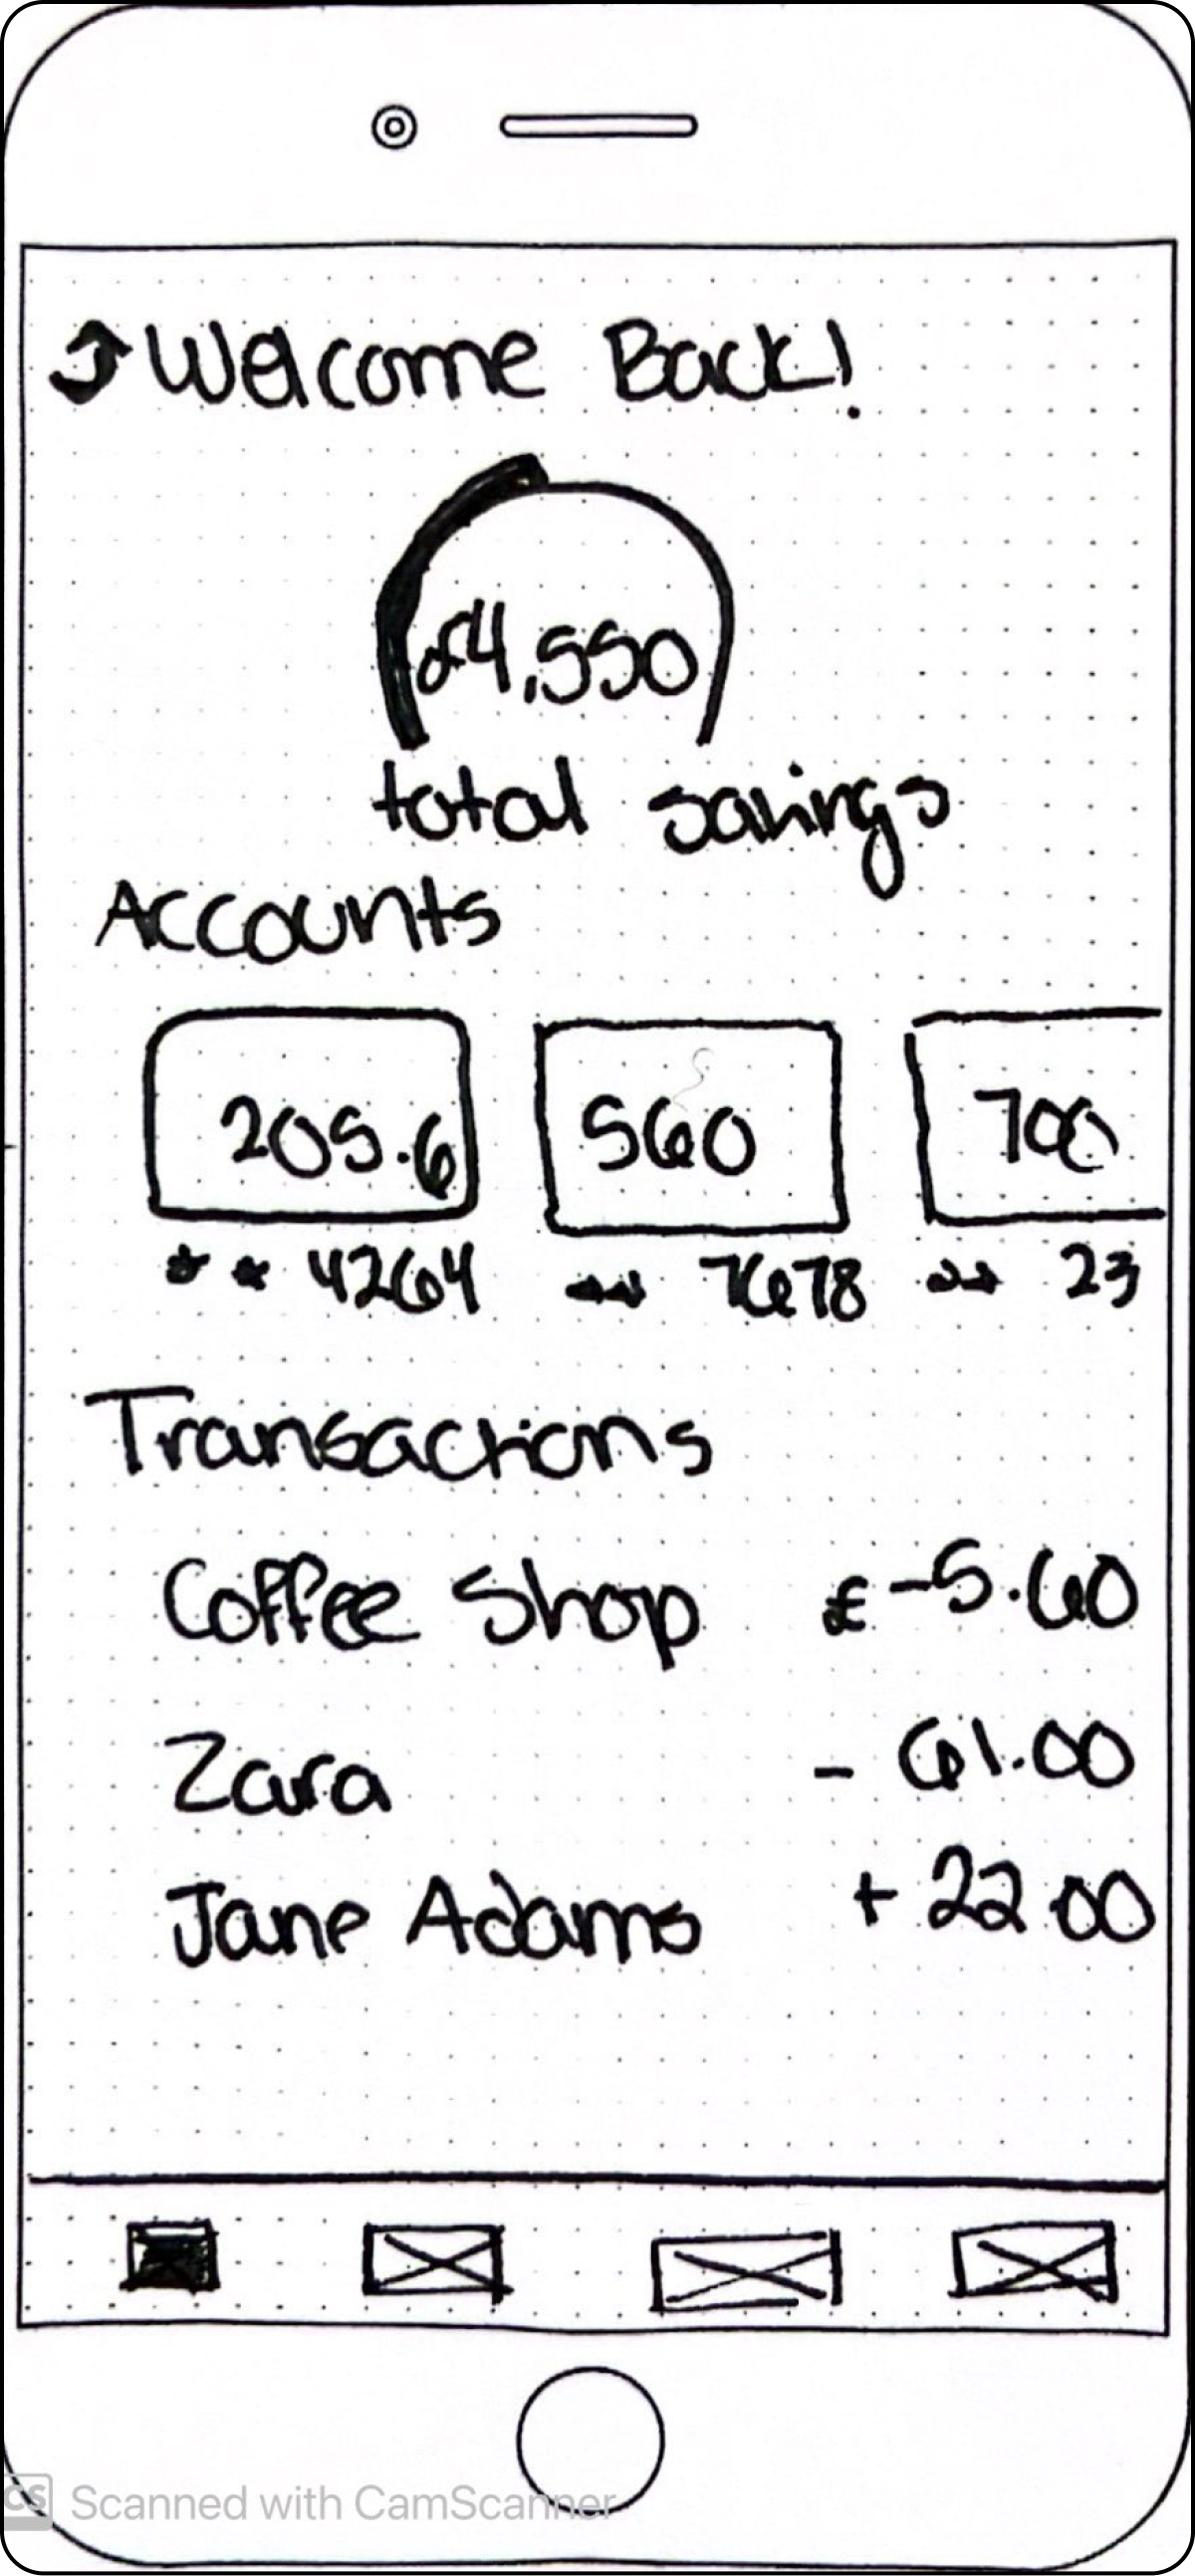 Welcome Back!
£4,550
total savings
Accounts
205.6 560 700
** 4264 ** 7678 ** 23
Transactions
Coffee Shop £ -5.60
Zara - 61.00
Jane Adams + 22.00
CS Scanned with CamScanner